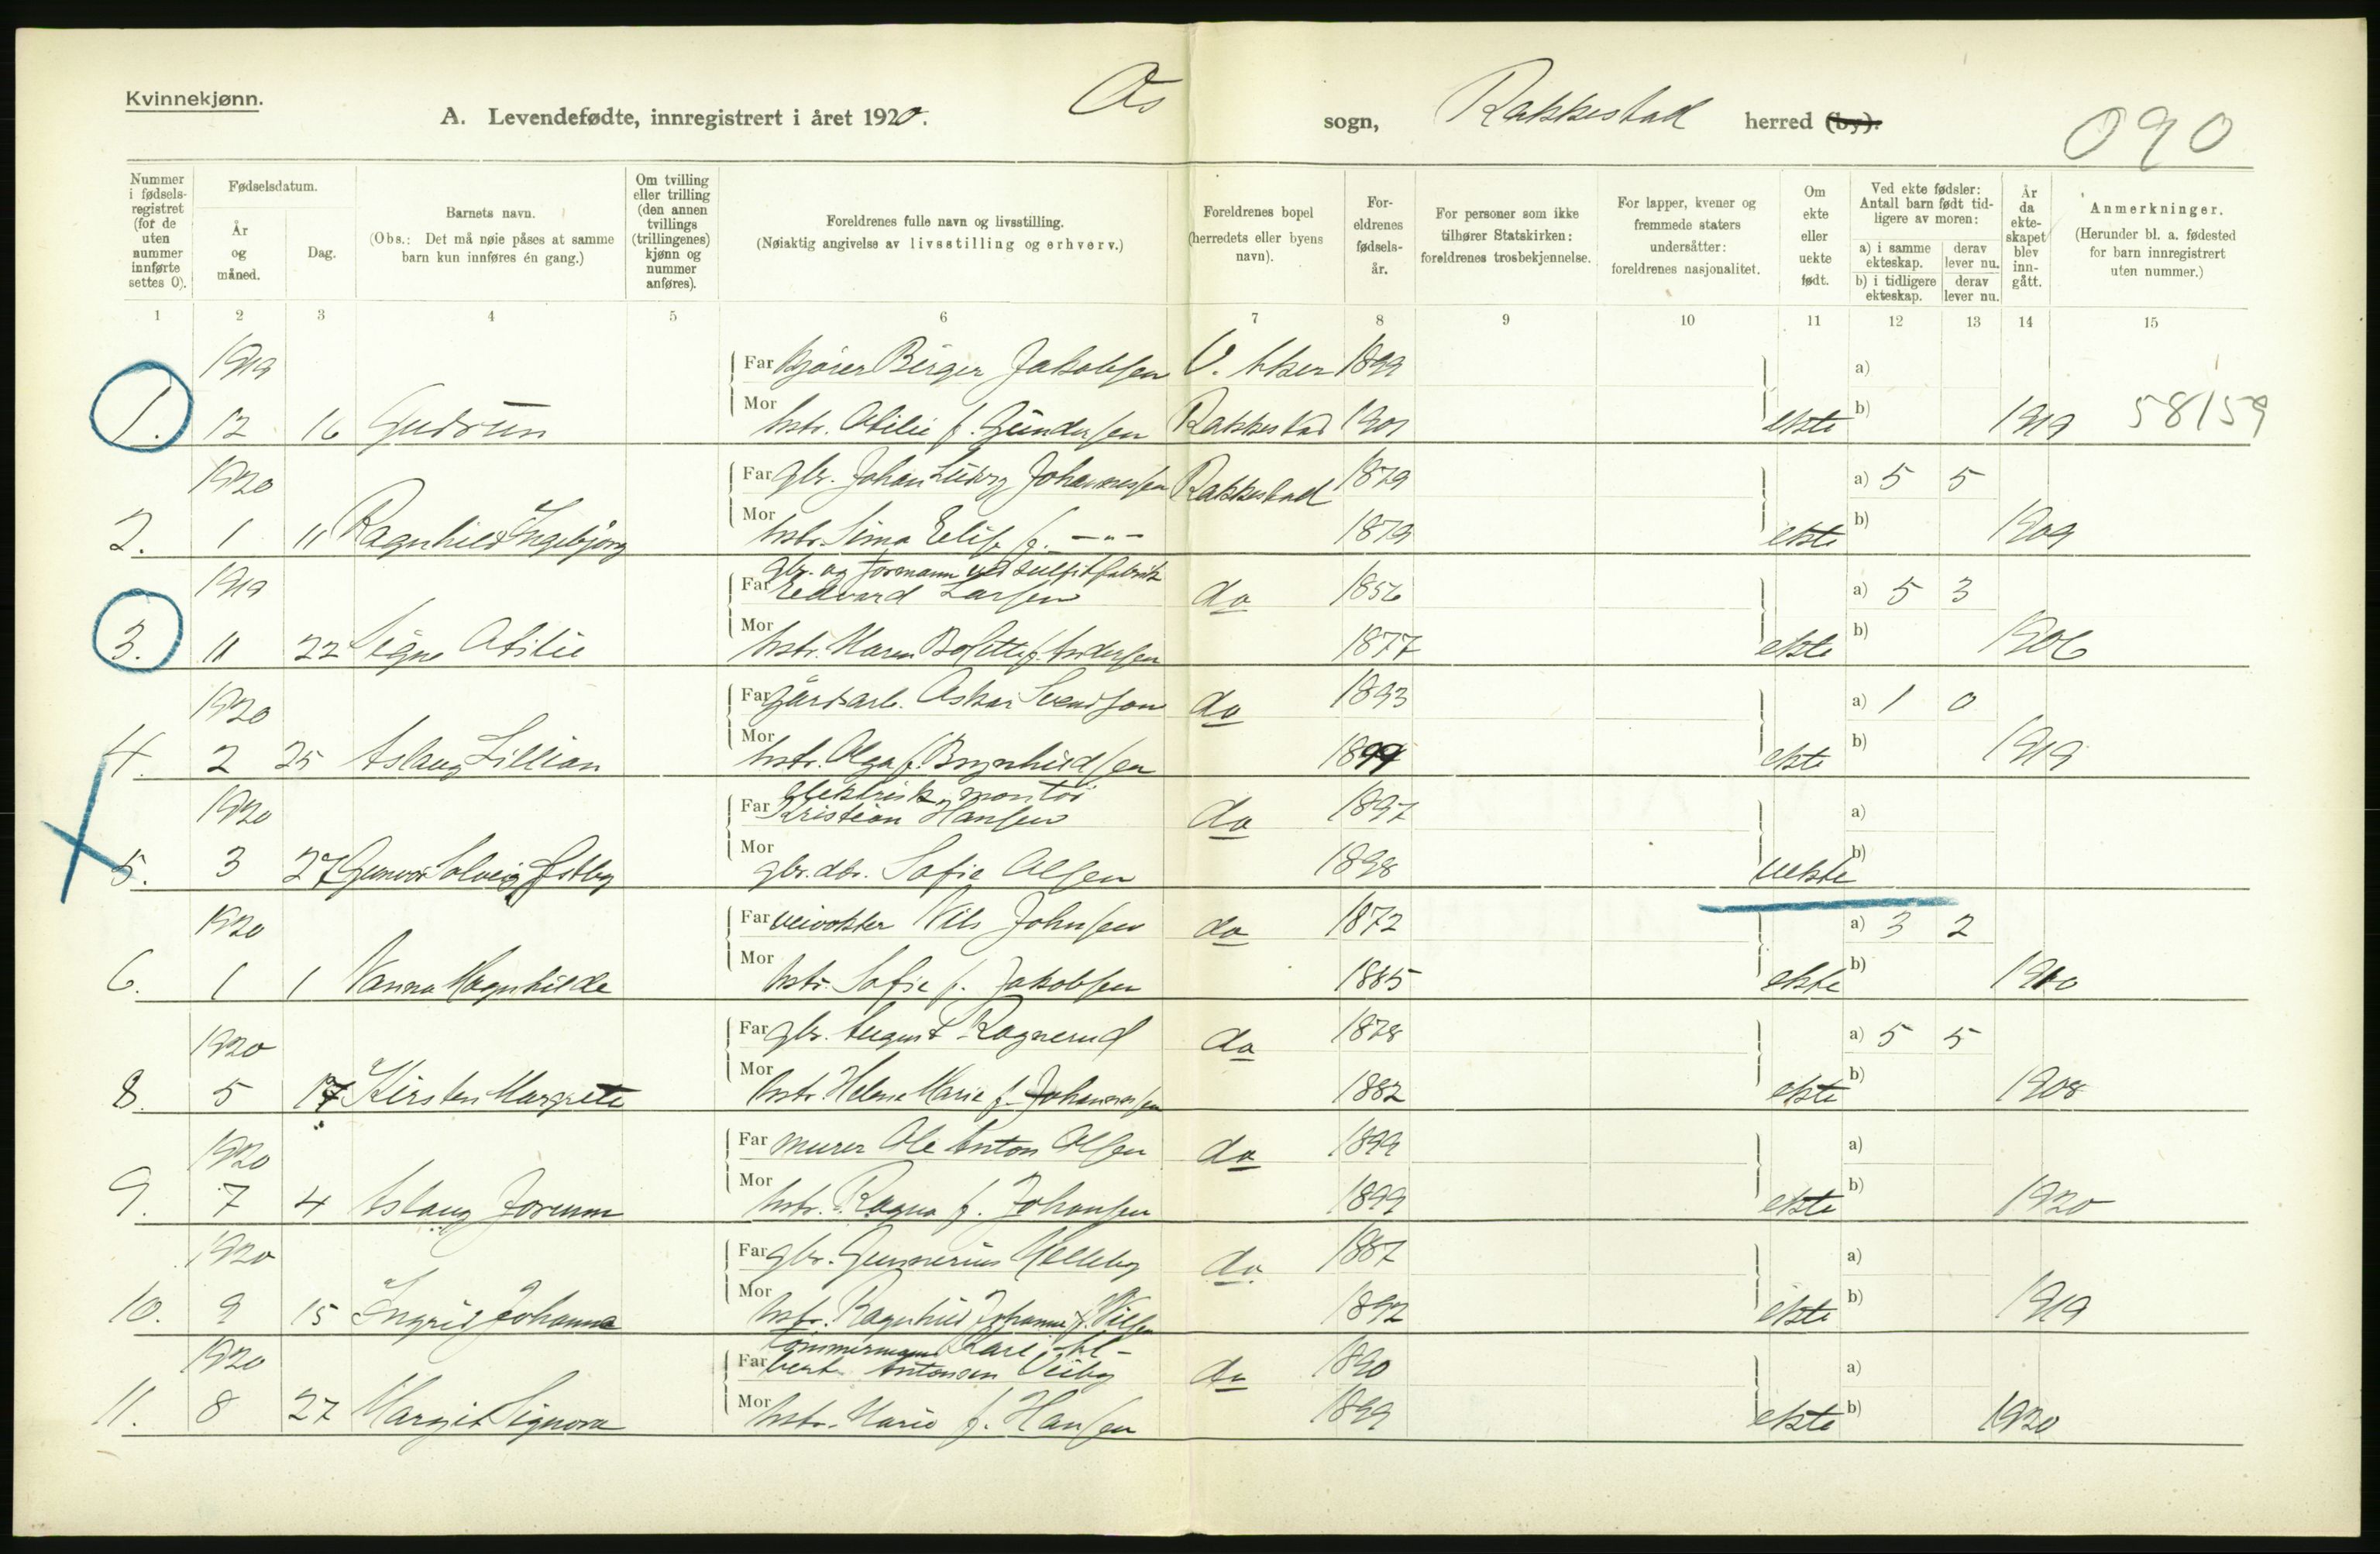 Kvinnekjønn.
A. Levendefødte, innregistrert i året 1920. Os sogn, Rakkestad herred (by).
090
Nummer i fødsels-registret (for de uten nummer innførte settes 0).
Fødselsdatum.
År og måned.
Dag.
Barnets navn.
(Obs.: Det må nøie påses at samme barn kun innføres én gang.)
Om tvilling eller trilling (den annen tvillings (trillingenes) kjønn og nummer anføres).
Foreldrenes fulle navn og livsstilling.
(Nøiaktig angivelse av livsstilling og erhverv.)
Foreldrenes bopel (herredets eller byens navn).
For-eldrenes fødsels-år.
For personer som ikke tilhører Statskirken: foreldrenes trosbekjennelse.
For lapper, kvener og fremmede staters undersåtter: foreldrenes nasjonalitet.
Om ekte eller uekte født.
Ved ekte fødsler: Antall barn født tid-ligere av moren:
a) i samme ekteskap. derav lever nu.
b) i tidligere ekteskap. derav lever nu.
År da ekte-skapet blev inn-gått.
Anmerkninger.
(Herunder bl. a. fødested for barn innregistrert uten nummer.)
1 2 3 4 5 6 7 8 9 10 11 12 13 14 15
1919 Far Birger Jakobsen V. Aker 1899 a)
1. 12 16 Gudrun Mor hstr. Otilie f. Gundersen Rakkestad 1901 ekte b) 1919 58/59
1920 Far gbr. Johan Ludvig Johannessen Rakkestad 1879 a) 5 5
2. 1 11 Ragnhild Ingebjørg Mor hstr. Elise f. -"- 1879 ekte b) 1909
gbr. og formann ved sulfitfabrik
1919 Far Edvard Larsen do 1856 a) 5 3
3. 11 22 Signe Otilie Mor hstr. Maren Bolette f. Andersen 1877 ekte b) 1906
1920 Far gårdsarb. Oskar Svendsen do 1893 a) 1 0
4. 2 25 Aslaug Lillian Mor hstr. Olga f. Brynhildsen 1899 ekte b) 1919
elektrisk montør
1920 Far Kristian Hansen do 1897 a)
5. 3 27 Gunvor Solveig Østby Mor gbr.dtr. Sofie Olsen 1898 uekte b)
1920 Far veivokter Nils Johnsen do 1872 a) 3 2
6. 1 1 Nanna Magnhilde Mor hstr. Sofie f. Jakobsen 1885 ekte b) 1910
1920 Far gbr. August Ragnerud do 1878 a) 5 5
8. 5 17 Kirsten Margrete Mor hstr. Helene Marie f. Johannessen 1882 ekte b) 1908
1920 Far murer Ole Anton Olsen do 1899 a)
9. 7 4 Aslaug Jorunn Mor hstr. Ragna f. Johansen 1899 ekte b) 1920
1920 Far gbr. Gunnerius Melleby do 1887 a)
10. 9 15 Ingrid Johanne Mor hstr. Ragnhild Johanne f. Nilsen 1892 ekte b) 1919
tømmermann Karl Al-
1920 Far bert Antonsen Viby do 1890 a)
11. 8 27 Margit Signora Mor hstr. Marie f. Hansen 1899 ekte b) 1920